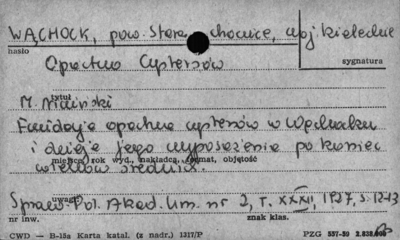 WĄCHOCK, pow. Stara chowice, woj. kieleckie
hasło
Opactwo Cystersów
sygnatura
tytuł
M. Niwiński
Fundacja opactwa cystersów w Wąchocku
i dzieje jego wyposażenia po koniec
miejsce, rok wyd., nakładca, format, objętość
wieków średnich.
uwagi
Spraw. Pol. Akad. Um. nr 2, T. XXXII, 1927, s. 12-13
nr inw.
znak klas.
CWD — B-15a Karta katal. (z nadr.) 1317/P
PZG 557-50 2.838.000